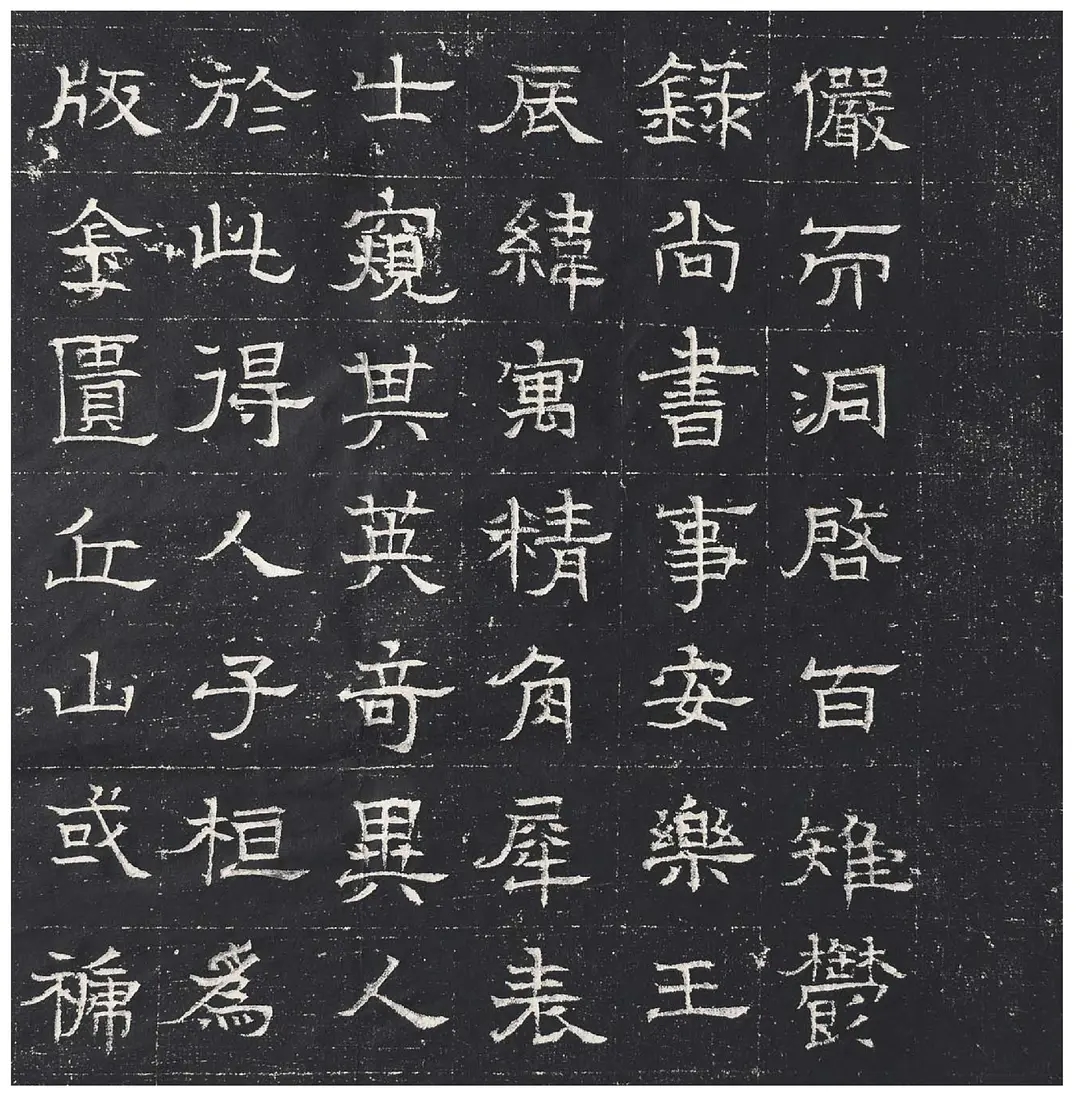 儼而洞啓百雉鬱
錄尚書事安樂王
辰緯寓精角犀表
士窺其英奇異人
於此得人子桓為
版金匱丘山或褫